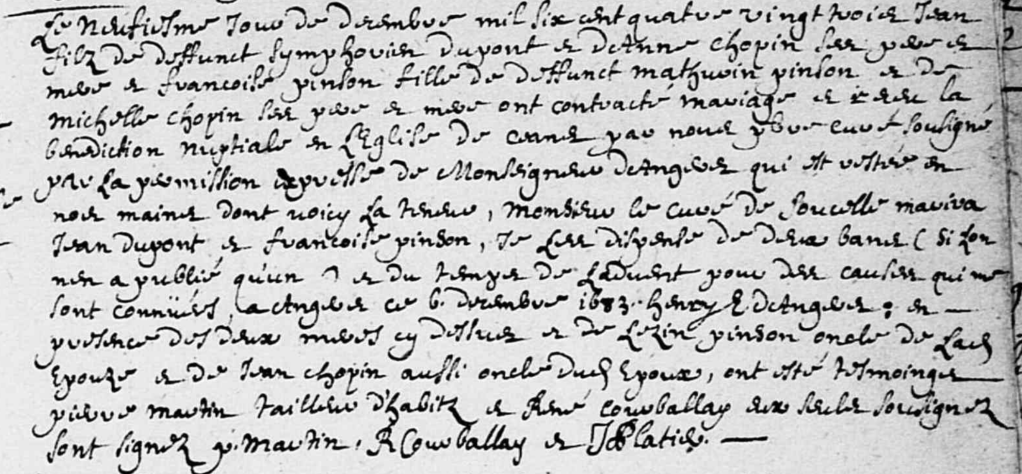 Le Neufiesme Jour de decembre mil six cent quatre vingt trois Jean
filz de deffunct Symphorien dupont et d'Anne chopin ses pere et
mere et francoise pinson fille de deffunct mathurin pinson et de
michelle chopin ses pere et mere ont contracté mariage et receu la
benediction nuptiale en L'Eglise de ceans par nous pbre curé sousigné
par La permission expresse de Monseigneur d'Angers qui est restée en
nos mains dont voicy La teneur, Monsieur le curé de Soucelle marira
Jean dupont et francoise pinson, Je Les dispense de deux bans ( si l'on
n'en a publié qu'un ) et du temps de L'advent pour des causes qui me
sont connües, a Angers ce 6. decembre 1683. henry E. d'Angers : en
presence des deux meres cy dessus et de Lezin pinson oncle de Lad
Epouze et de Jean chopin aussi oncle dud Epoux, ont esté tesmoings
pierre martin tailleur d'habitz et René Courballay eux seuls sousignez
sont signez p. Martin, R Courballay et